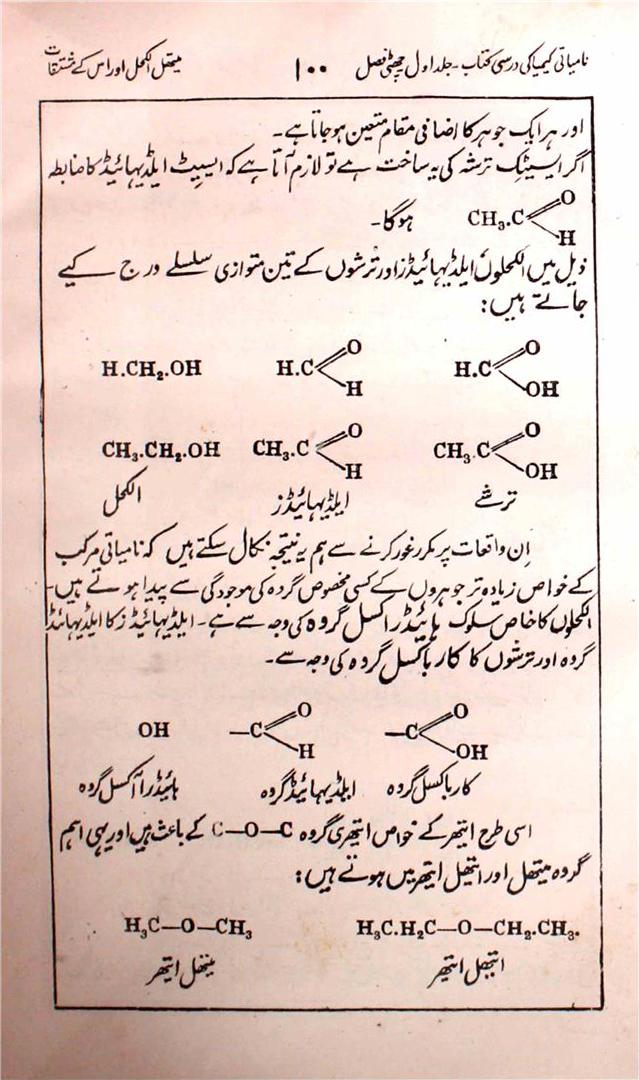 نامیاتی کیمیا کی درسی کتاب - جلد اول چھٹی فصل ۱۰۰ میتھل الکحل اور اس کے مشتقات
اور ہر ایک جوہر کا اضافی مقام متعین ہوجاتا ہے۔
اگر ایسیٹک ترشہ کی یہ ساخت ہے تو لازم آتا ہے کہ ایسیٹ ایلڈیہائیڈ کا ضابطہ
CH₃.C O H ہوگا۔
ذیل میں الکحلوں، ایلڈیہائیڈز اور ترشوں کے تین متوازی سلسلے درج کیے
جاتے ہیں:
H.C O OH H.C O H H.CH₂.OH
CH₃.C O OH CH₃.C O H CH₃.CH₂.OH
ترشے ایلڈیہائیڈز الکحل
اِن واقعات پر مکرر غور کرنے سے ہم یہ نتیجہ نکال سکتے ہیں کہ نامیاتی مرکب
کے خواص زیادہ تر جوہروں کے کسی مخصوص گروہ کی موجودگی سے پیدا ہوتے ہیں۔
الکحلوں کا خاص سلوک ہائیڈراکسل گروہ کی وجہ سے ہے۔ ایلڈیہائیڈز کا ایلڈیہائیڈ
گروہ اور ترشوں کا کارباکسل گروہ کی وجہ سے۔
—C O OH —C O H OH
کارباکسل گروہ ایلڈیہائیڈ گروہ ہائیڈراآکسل گروہ
اسی طرح ایتھر کے خواص ایتھری گروہ C—O—C کے باعث ہیں اور یہی اہم
گروہ میتھل اور ایتھل ایتھر میں ہوتے ہیں:
H₃C.H₂C—O—CH₂.CH₃. H₃C—O—CH₃
ایتھل ایتھر میتھل ایتھر